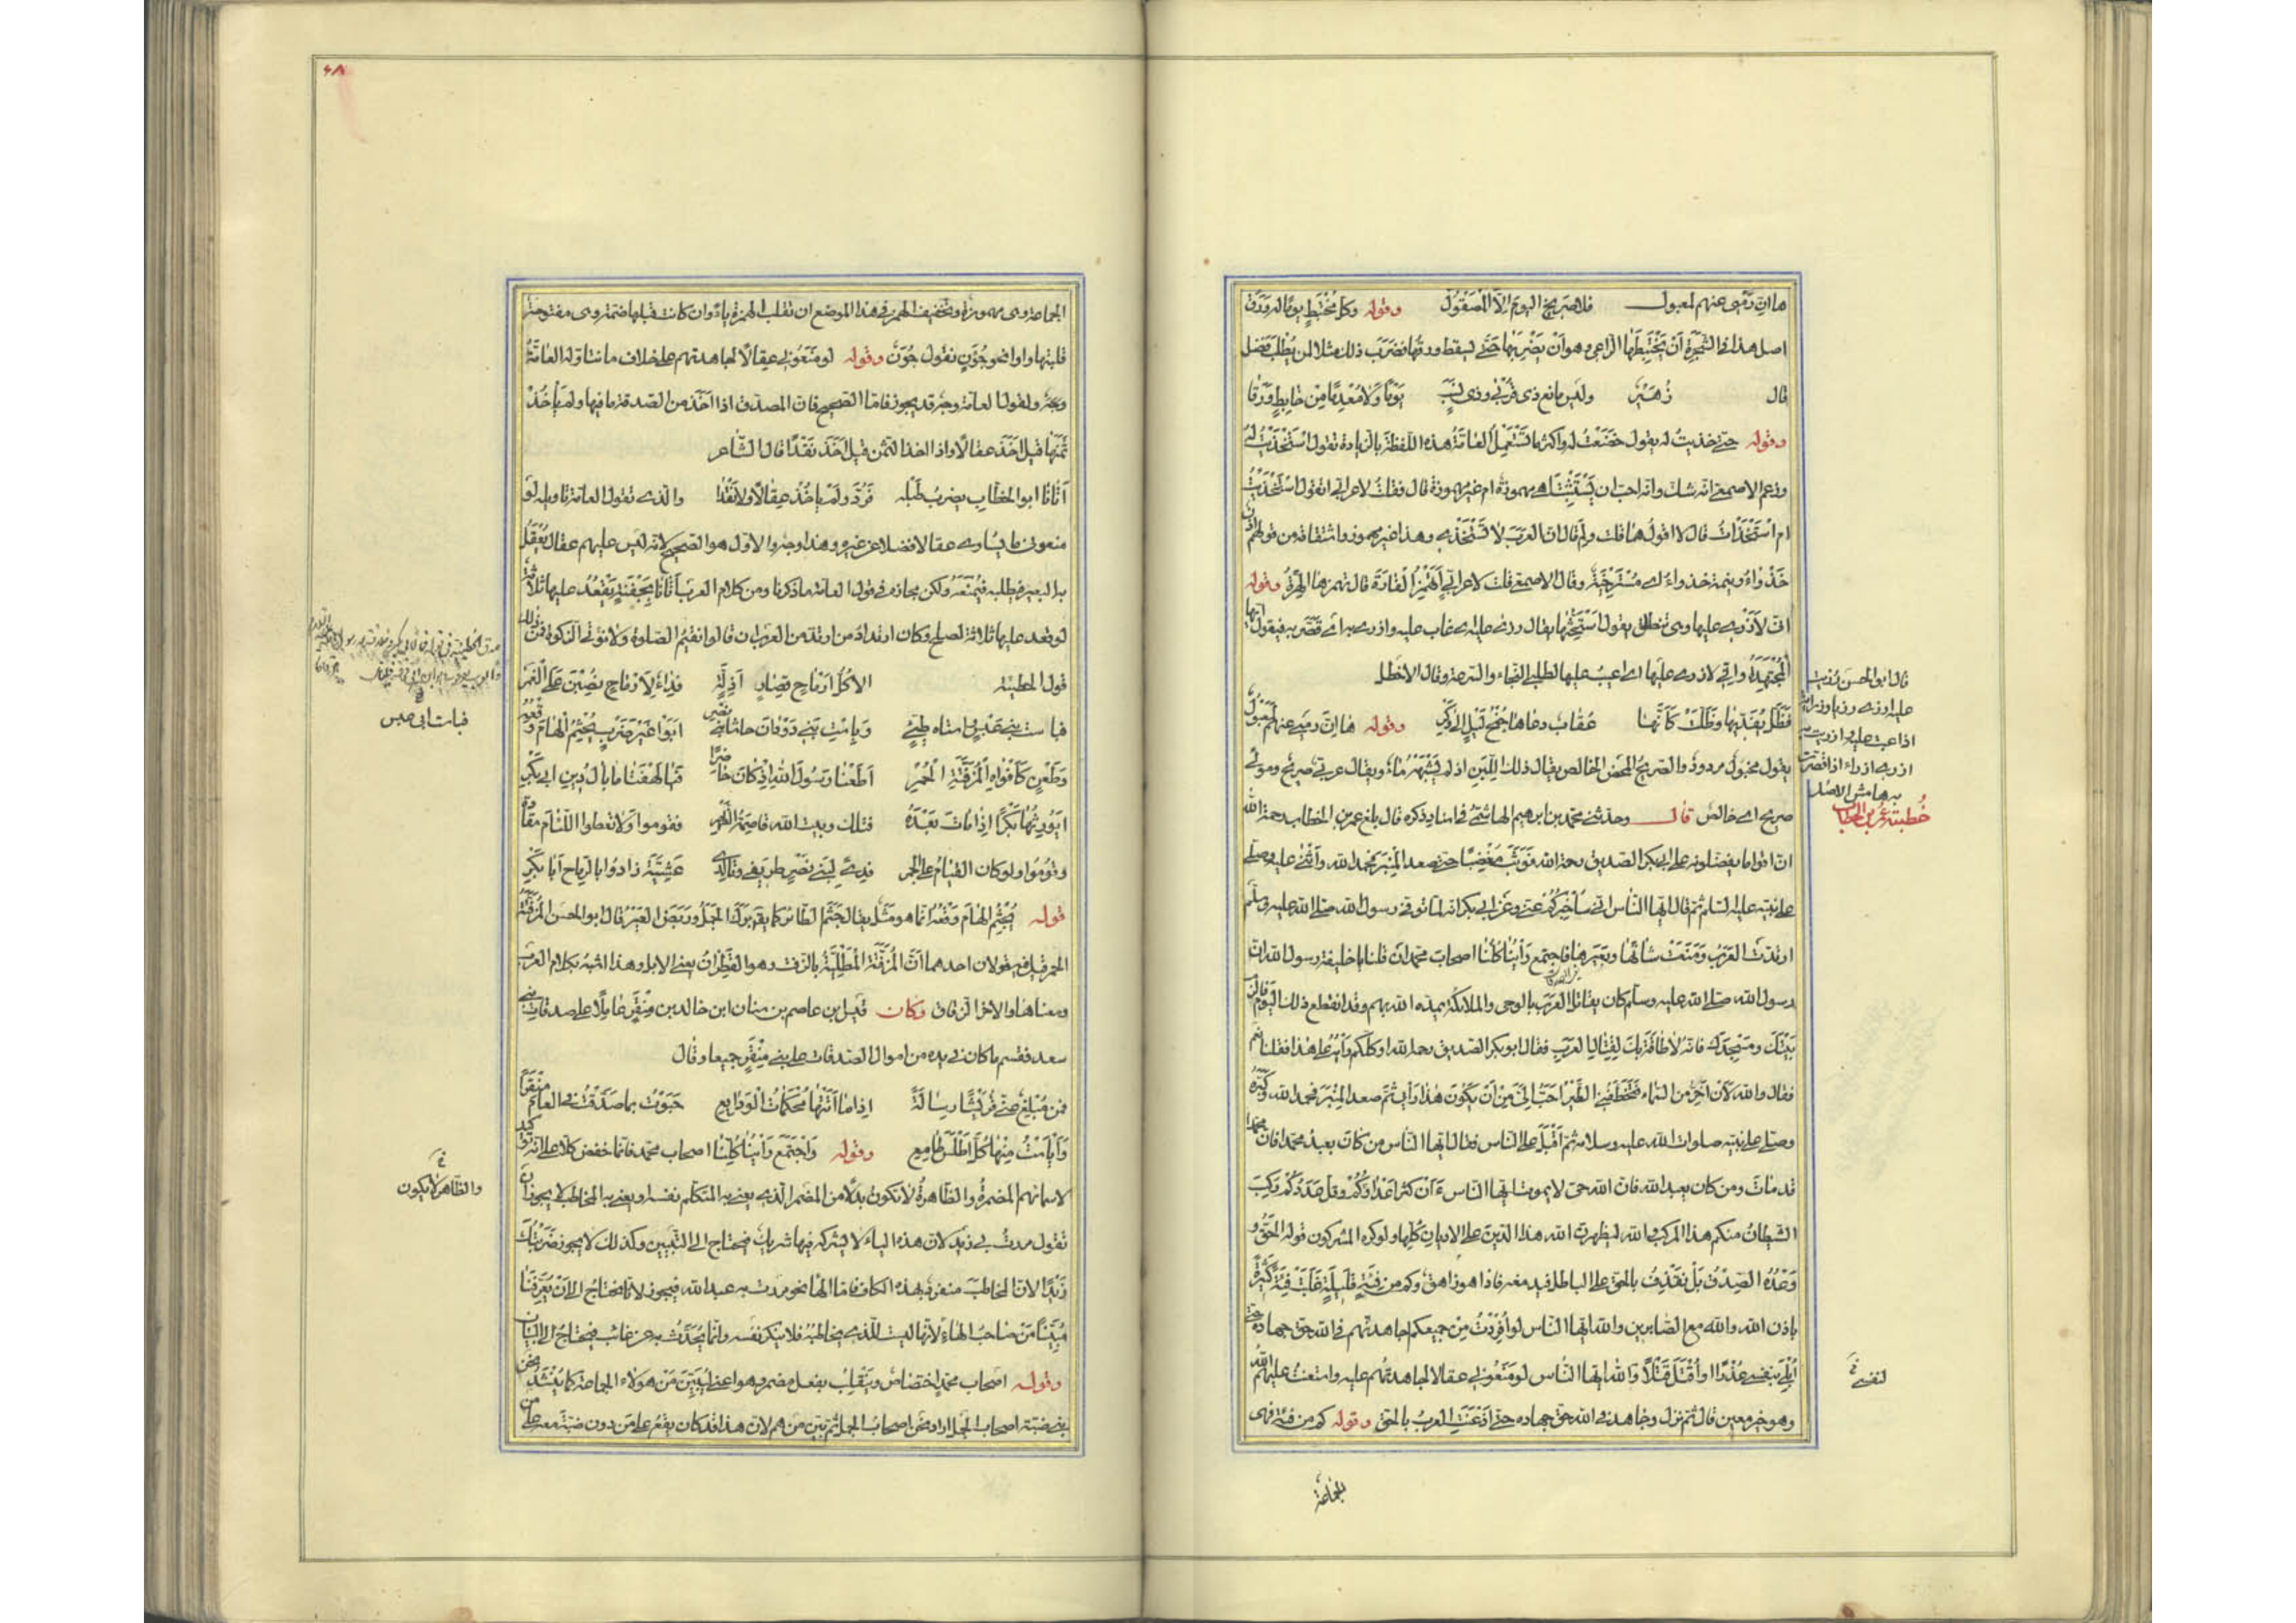 ها ان رمى عنهم لمعبول فلا صريح اليوم الا المصقول وقوله وكل مختبط يوما له ورق
اصل هذا فى الشجرة ان يختبطها الراعى وهو ان يضربها حتى يسقط ورقها فضرب ذلك مثلا لمن يطلب فضل
قال زهير وليس مانع ذى قربى وذى نسب يوما ولا معدما من خابط ورقا
وقوله حتى خذيت له يقول خضعت له واكثر ما تستعمل العامة هذه اللفظة بالزيادة تقول استخذيت له
وزعم الاصمعى انه شك وانه احب ان يستثبت اهى مهموزة ام غير مهموزة قال فقلت لاعرابى اتقول استخذيت
ام استخذأت قال لا اقولهما قلت ولم قال لان العرب لا تستخذى وهذا غير مهموز واشتقاقه من قولهم اذن
خذواء وينمة خذواء اى مسترخية وقال الاصمعى قلت لاعرابى اتهمز الفارة قال تهمزها الهرة وقوله
انى لازرى عليها وهى تنطلق يقول استحثها يقال زرى عليه اى عاب عليه وازرى به اى قصر به فيقول انها
لمجتهدة وانى لازرى عليها اى اعيب عليها لطلبى النجاء والسرعة وقال الاخطل
فظل يفديها وظلت كانها عقاب دعاها جنح ليل الى وكر وقوله ها ان رمى عنهم لمعبول
يقول مخبول مردود والصريح المحض الخالص يقال ذلك للبن اذا لم يشبه ماء ويقال عربى صريح ومولى
صريح اى خالص قال وحدثنى محمد بن ابرهيم الهاشمى فى اسناد ذكره قال بلغ عمر بن الخطاب رحمه الله
ان اقواما يفضلونه على ابى بكر الصديق رحمه الله فوثب مغضبا حتى صعد المنبر فحمد الله واثنى عليه وصلى
على نبيه عليه السلم ثم قال ايها الناس انى ساخبركم عنى وعن ابى بكر انه لما توفى رسول الله صلى الله عليه وسلم
ارتدت العرب ومنعت شاتها وبعيرها فاجتمع رأينا كلنا اصحاب محمد ان قلنا يا خليفة رسول الله ان
رسول الله صلى الله عليه وسلم كان يقاتل العرب بالوحى والملائكة يمده الله بهم وقد انقطع ذلك اليوم فالزم
بيتك ومسجدك فانه لا طاقة بك لقتال العرب فقال ابو بكر الصديق رحمه الله اوكلكم رأيه على هذا فقلنا نعم
فقال والله لان اخر من السماء فتخطفنى الطير احب الى من ان يكون هذا رأيى ثم صعد المنبر فحمد الله وكبره
وصلى على نبيه صلوات الله عليه وسلامه ثم اقبل على الناس فقال ايها الناس من كان يعبد محمدا فان محمدا
قد مات ومن كان يعبد الله فان الله حى لا يموت ايها الناس ءان كثر اعداؤكم وقل عددكم ركب
الشيطان منكم هذا المركب والله ليظهرن الله هذا الدين على الاديان كلها ولو كره المشركون قوله الحق و
وعده الصدق بل نقذف بالحق على الباطل فيدمغه فاذا هو زاهق وكم من فئة قليلة غلبت فئة كثيرة
باذن الله والله مع الصابرين والله ايها الناس لو افردت من جميعكم لجاهدتهم فى الله حق جهاده حتى
ابلى بنفسى عذرا او اقتل قتلا والله ايها الناس لو منعونى عقالا لجاهدتهم عليه واستعنت عليهم الله
وهو خير معين قال ثم نزل وجاهد فى الله حق جهاده حتى اذعنت العرب بالحق وقوله كم من فئة فهى
الجماعة
قال ابو الحسن زريت
عليه ازرى زريا وزراية
اذا عبت عليه وازريت به
ازرى ازراء اذا قصرت
به هامش الاصل
خطبة عمر بن الخطاب
لنفسى
الجماعة وهى مهموزة وتخفيف الهمز فى هذا الموضع ان تقلب الهمزة ياء وان كانت قبلها ضمة وهى مفتوحة
قلبتها واوا نحو جؤن تقول جون وقوله لو منعونى عقالا لجاهدتهم على خلاف ما تتاوله العامة
وجه ولقول العامة وجه قد يجوز فاما الصحيح فان المصدق اذا اخذ من الصدقة ما فيها ولم ياخذ
ثمنها قيل اخذ عقالا واذا اخذ الثمن قيل اخذ نقدا قال الشاعر
اتانا ابو الخطاب يضرب طبله فرد ولم ياخذ عقالا ولا نقدا والذى تقول العامة تاويله لو
منعونى ما يساوى عقالا فضلا عن غيره وهذا وجه والاول هو الصحيح لانه ليس عليهم عقال يعقل
به البعير فيطلبه فيمنعه ولكن مجازه فى قول العامة ما ذكرنا ومن كلام العرب اتانا بجفنة يقعد عليها ثلاثة
لو قعد عليها ثلاثة لصلح وكان ارتداد من ارتد من العرب ان قالوا نقيم الصلوة ولا نؤتى الزكوة فمن ذلك
قول الحطيئة الا كل ارماح قصار اذلة فداء لارماح نصبن على الغمر
فباست بنى عبس واستاه طيئ وباست بنى دودان حاشا بنى نصر ابوا غير ضرب يجثم الهام وقعه
وطعن كافواه المزفتة الحمر اطعنا رسول الله اذ كان حاضرا فيا لهفتا ما بال دين ابى بكر
ايورثها بكرا اذا مات بعده فتلك وبيت الله قاصمة الظهر فقوموا ولا تعطوا اللئام مقادة
وقوموا ولو كان القيام على الجمر فدى لبنى نصر طريفى وتالدى عشية زادوا بالرماح ابا بكر
قوله يجثم الهام وقعه انما هو مثل يقال جثم الطائر كما يقال برك الجمل وربض البعير قال ابو الحسن المزفتة
الحمر قيل فيه قولان احدهما ان المزفتة المطلية بالزفت وهو القطران يعنى الابل وهذا اشبه بكلام العرب
ومعناها والاخر الزقاق وكان قيس بن عاصم بن سنان ابن خالد بن منقر عاملا على صدقات بنى
سعد فقسم ما كان فى يده من اموال الصدقات على بنى منقر جميعا وقال
فمن مبلغ عنى قريشا رسالة اذا ما اتتها محكمات الودايع حبوت بما صدقت فى العام منقرا
وايأست منها كل اطلس طامع وقوله واجتمع رأينا كلنا اصحاب محمد فانما خفض كلا على انه توكيد
لاسمائهم المضمرة والظاهرة لا تكون بدلا من المضمر الذى يعنى به المتكلم نفسه او يعنى به المخاطب لا يجوز ان
تقول مررت بى زيد لان هذه الياء لا يشركه فيها شريك فيحتاج الى التبيين وكذلك لا يجوز ضربتك
زيدا لان المخاطب منفرد بهذه الكاف فاما الهاء نحو مررت به عبد الله فيجوز لانا نحتاج الى ان يعرفنا
مبينا من صاحب الهاء لانها ليست للذى يخاطبه فلا ينكر نفسه وانما يحدث به عن غائب فيحتاج الى البيان
وقوله اصحاب محمد اختصاص وينتصب بفعل مضمر وهو اعنى ليبين من هؤلاء الجماعة كما ينشد نحن
بنى ضبة اصحاب الجمل اراد نحن اصحاب الجمل ثم بين من هم لان هذا قد كان يقع على من دون ضبة معه على من
فباست ابى عبس
والظاهر لا يكون